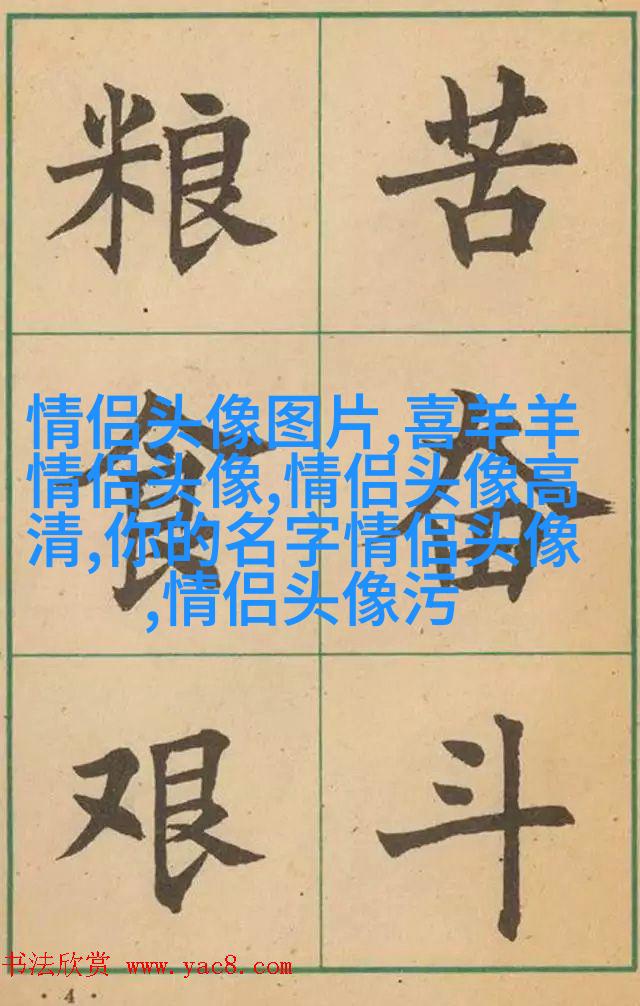 粮苦
食奋
艰斗
情侣头像图片,喜羊羊
情侣头像,情侣头像高
清,你的名字情侣头像
,情侣头像污
书法欣赏 www.yac8.com
· 4 ·